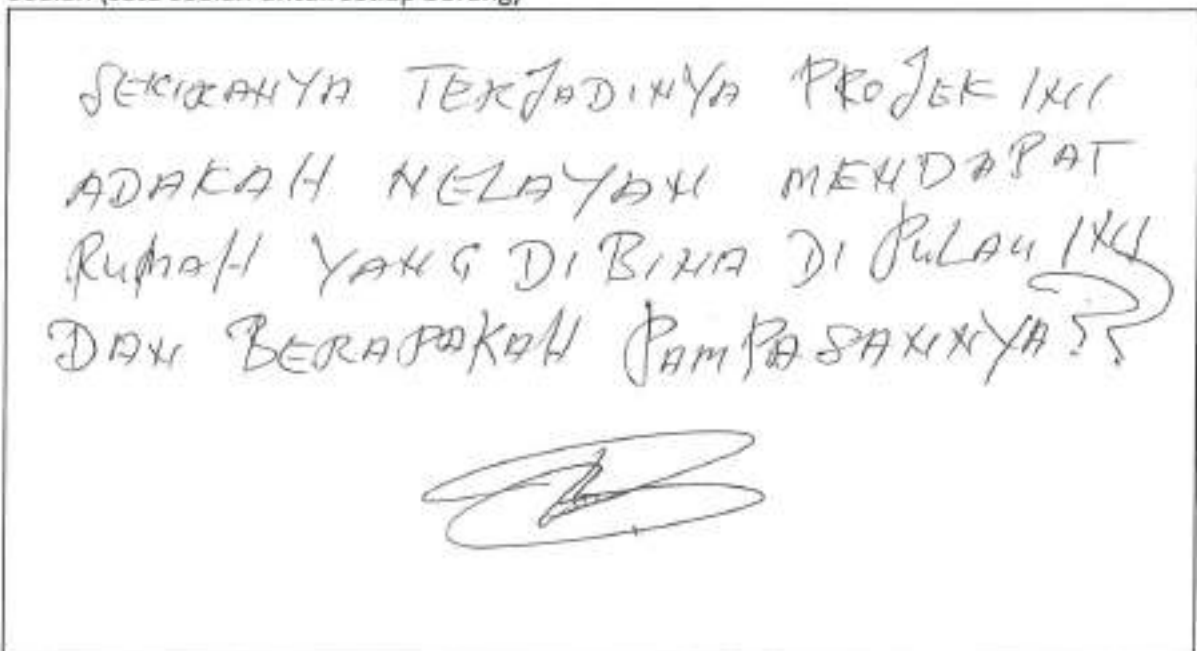 SEKIRANYA TERJADINYA PROJEK INI
ADAKAH NELAYAN MENDAPAT
RUMAH YANG DI BINA DI PULAU INI
DAN BERAPAKAH PAMPASANNYA??